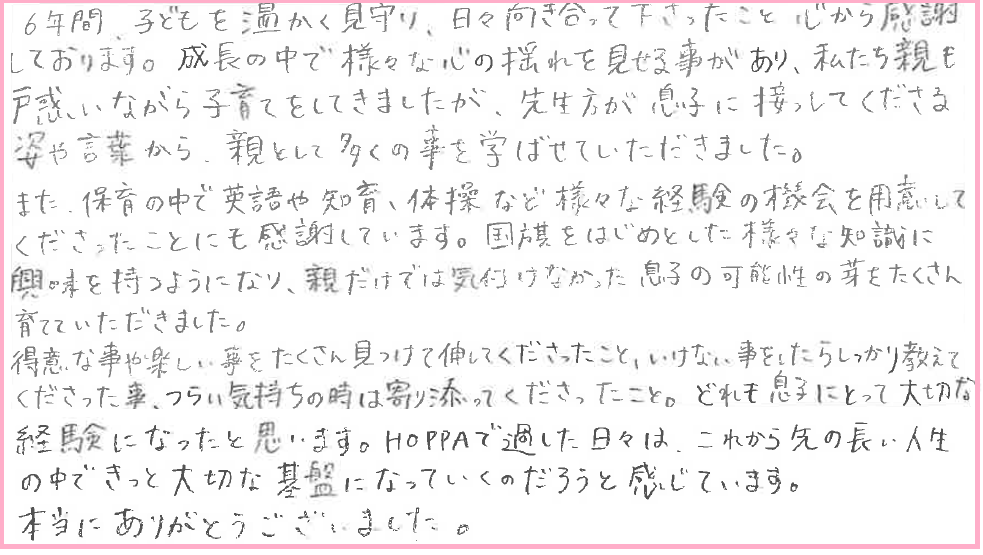 6年間、子どもを温かく見守り、日々向き合って下さったこと心から感謝
しております。成長の中で様々な心の揺れを見せる事があり、私たち親も
戸惑いながら子育てをしてきましたが、先生方が息子に接っしてくださる
姿や言葉から、親として多くの事を学ばせていただきました。
また、保育の中で英語や知育、体操など様々な経験の機会を用意して
くださったことにも感謝しています。国旗をはじめとした様々な知識に
興味を持つようになり、親だけでは気付けなかった息子の可能性の芽をたくさん
育てていただきました。
得意な事や楽しい事をたくさん見つけて伸してくださったこと、いけない事をしたらしっかり教えて
くださった事、つらい気持ちの時は寄り添ってくださったこと。どれも息子にとって大切な
経験になったと思います。HOPPAで過した日々は、これから先の長い人生
の中できっと大切な基盤になっていくのだろうと感じています。
本当にありがとうございました。